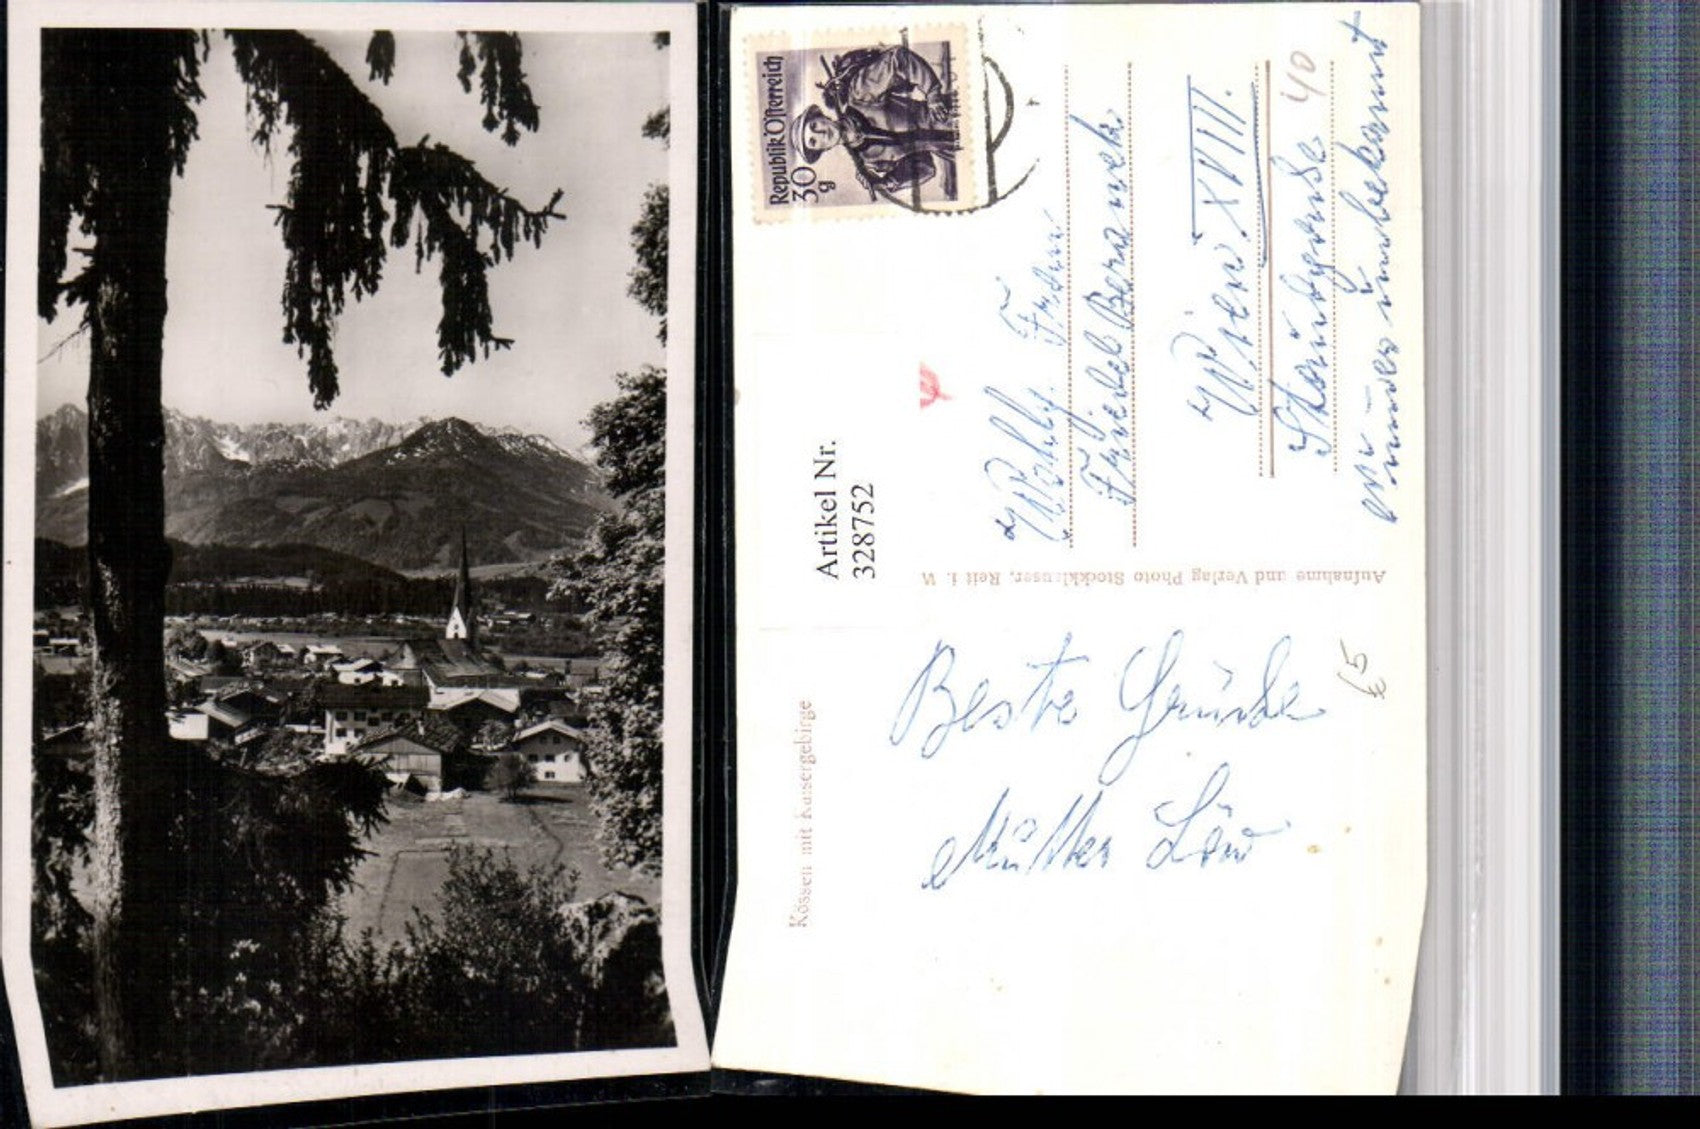 Republik Österreich
30
g
Artikel Nr.
328752
Kössen mit Kaisergebirge
Aufnahme und Verlag Photo Stockklauser, Reit i. W
Beste Grüße
Mutter Löw
Frau
Friedel
Wien XVIII.
40
unbekannt
65